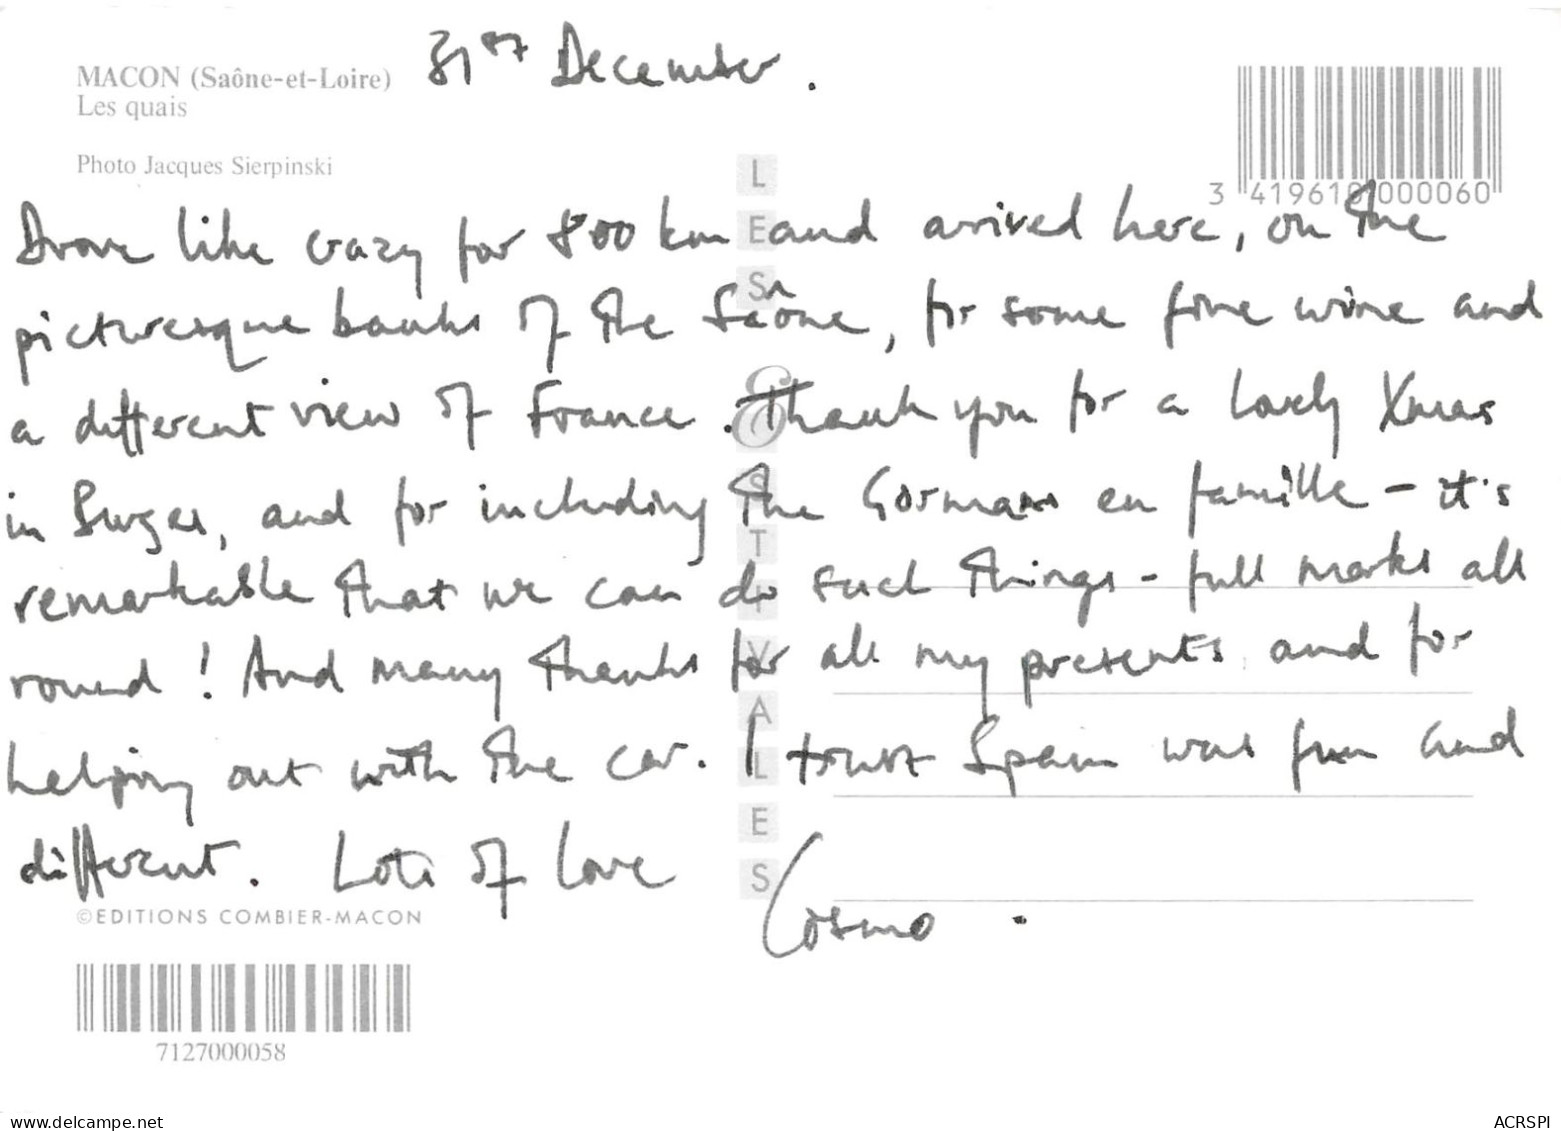 31st December.
MACON (Saône-et-Loire)
Les quais
Photo Jacques Sierpinski
3 419610 000060
LES & STIVALES
Drove like crazy for 800 km and arrived here, on the
picturesque banks of the Saône, for some fine wine and
a different view of France. Thank you for a lovely Xmas
in, and for including the Gormans en famille - it's
remarkable that we can do such things - full marks all
round! And many thanks for all my presents and for
helping out with the car. I trust Spain was fun and
different. Lots of love
Cosmo.
©EDITIONS COMBIER-MACON
7127000058
delcampe.net
ACRSPI